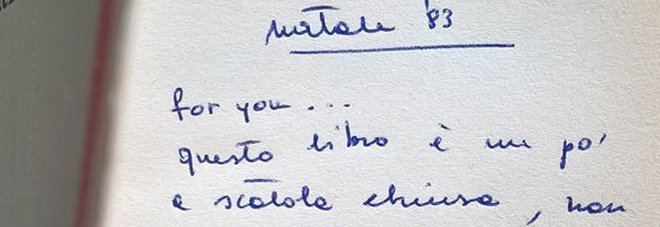 natale '83
for you...
questo libro è un po'
a scatola chiusa, non